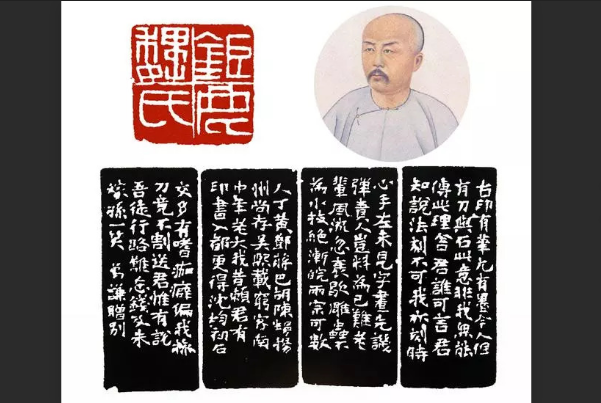 鉅鹿
魏氏
古印有筆尤有墨今人但
有刀與石此意非我無能
傳此理舍君誰可言君
知說法刻不可我亦刻時
心手左未見字畫先譏
彈貴人豈料為己難老
輩風流忽衰歇雕蟲不
為小技絕浙皖兩宗可數
人丁黃鄧蔣巴胡陳揚
州尚存吳熙載窮客南
中年老大我昔君有
印書入都更得沈均初石
交多有嗜痂癖偏我操
刀竟不割送君惟有說
吾徒行路難忘錢及朱
稼孫一笑 謙贈別